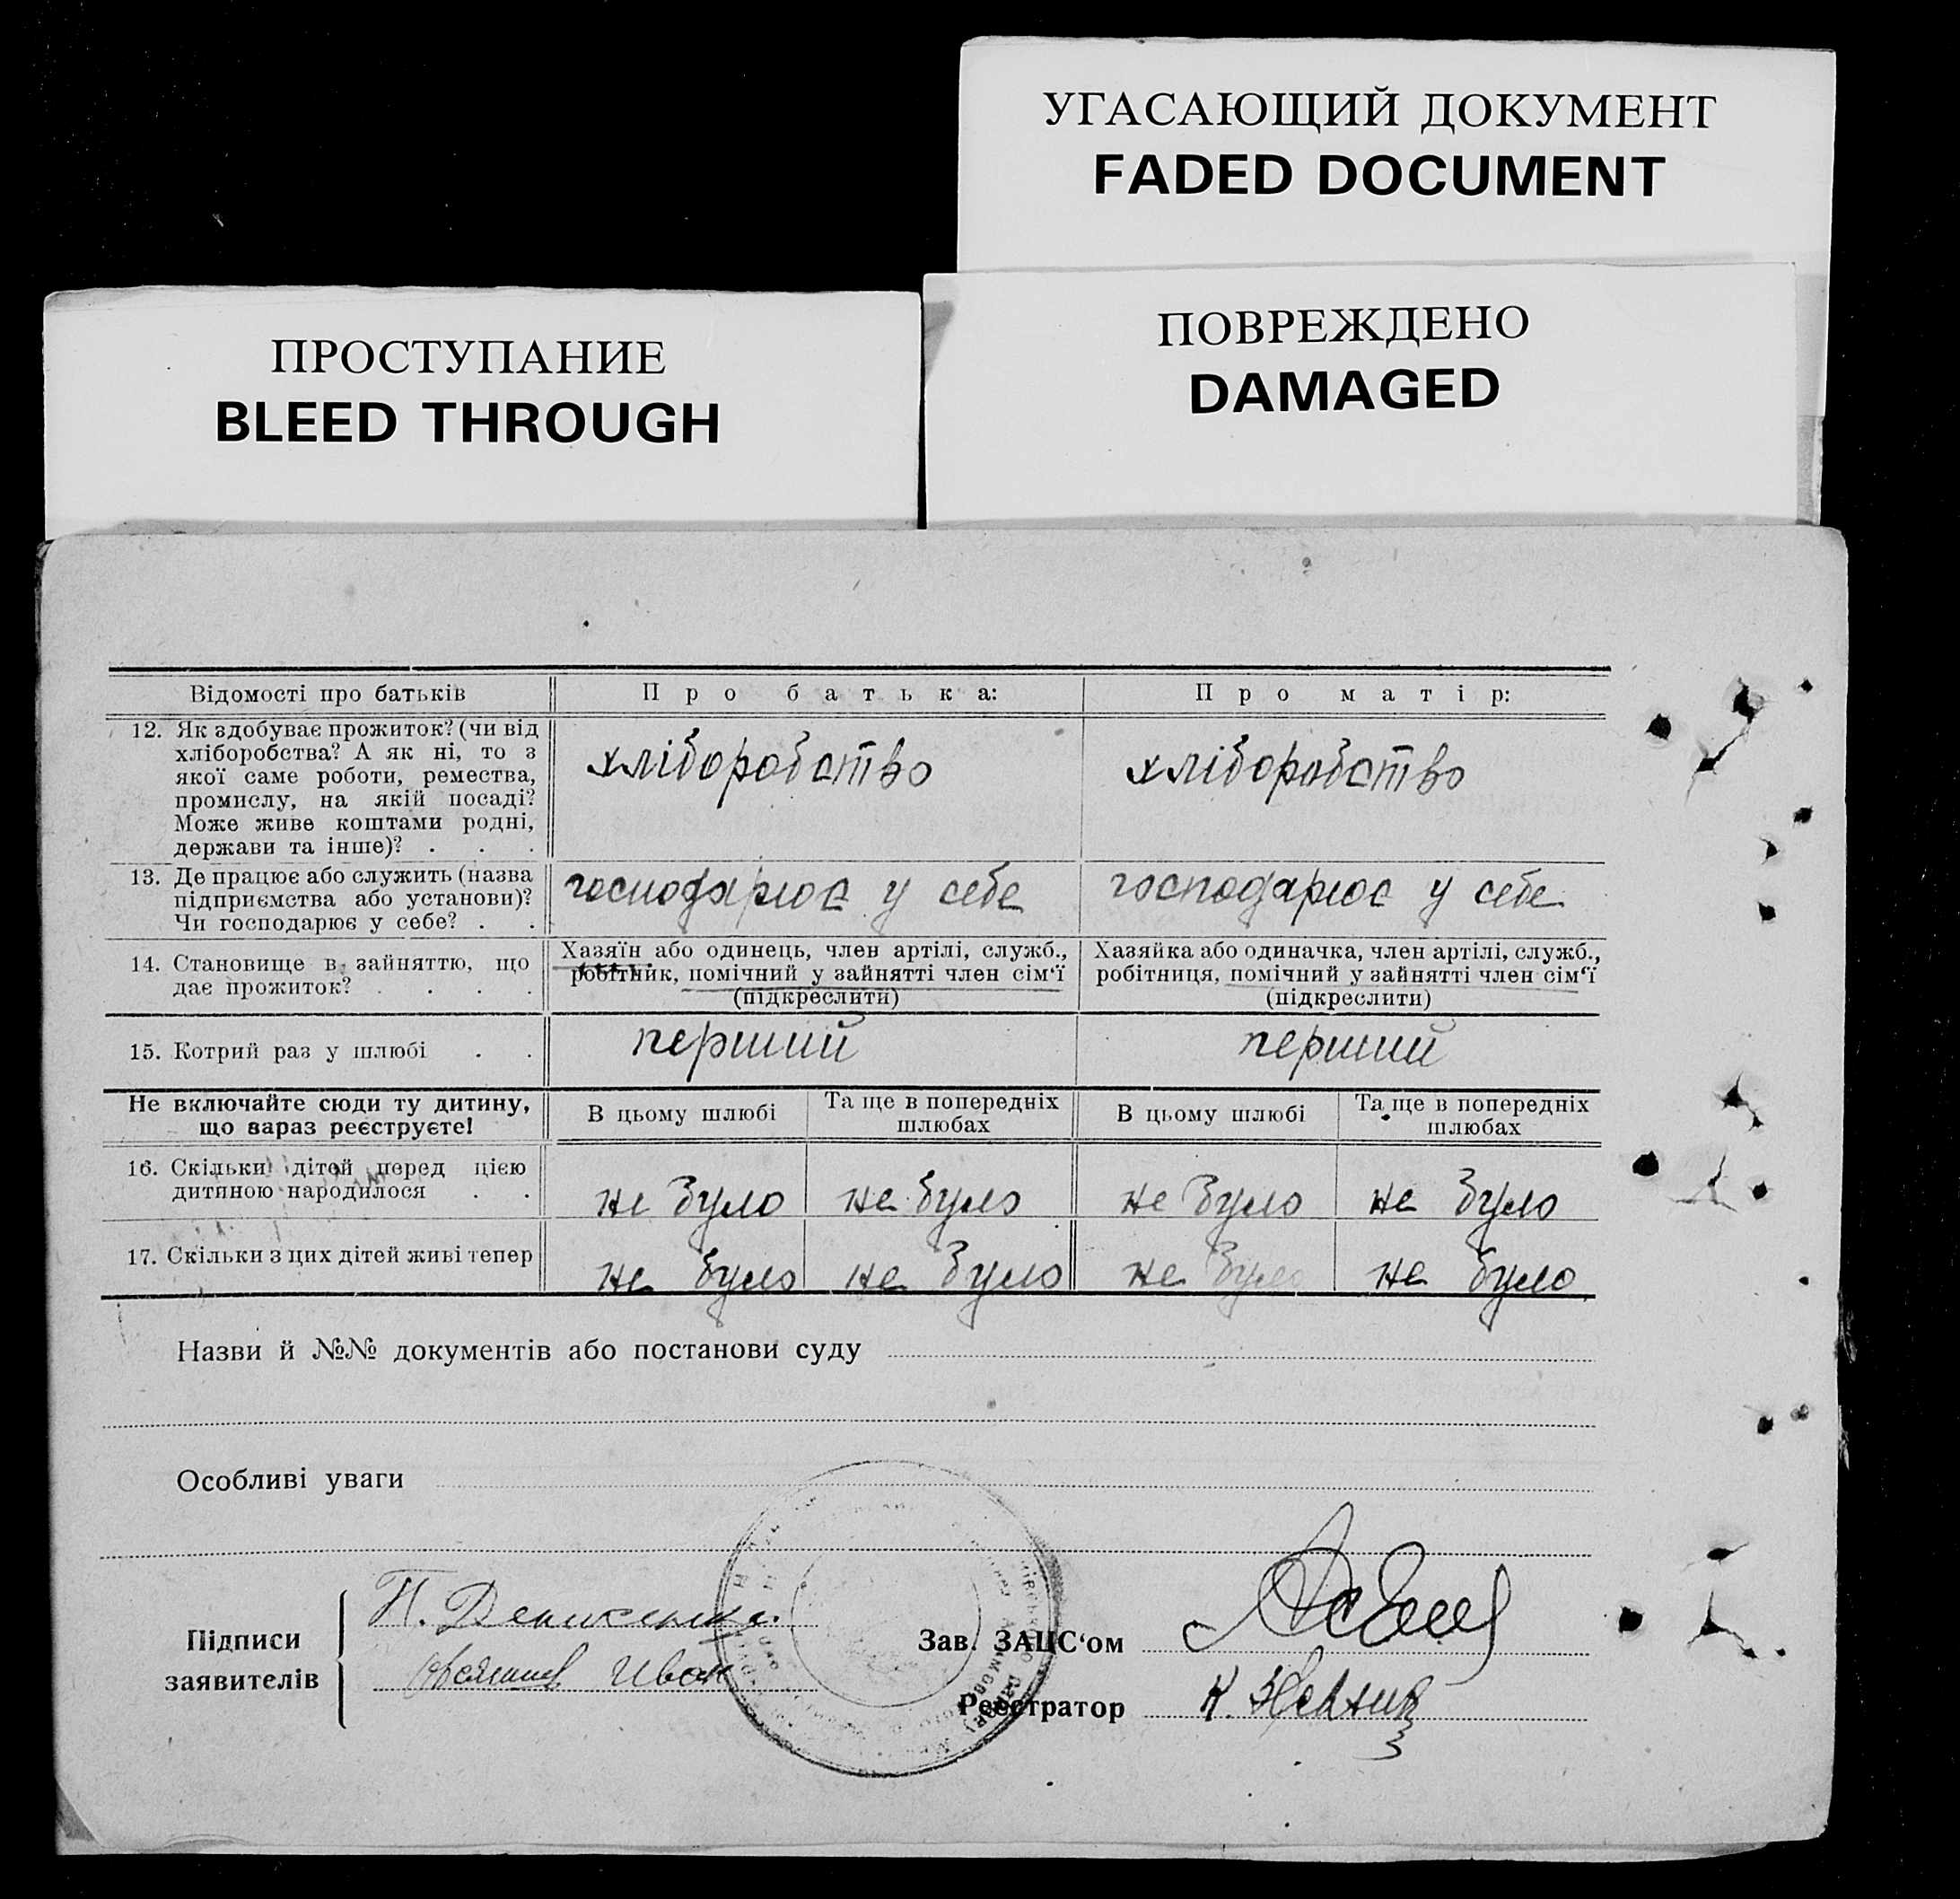 УГАСАЮЩИЙ ДОКУМЕНТ
FADED DOCUMENT
ПОВРЕЖДЕНО
DAMAGED
ПРОСТУПАНИЕ
BLEED THROUGH
Відомості про батьків
Про батька:
Про матір:
12. Як здобуває прожиток? (чи від
хліборобства? А як ні, то з
якої саме роботи, ремества,
промислу, на якій посаді?
Може живе коштами родні,
держави та інше)? . . .
хліборобство
хліборобство
13. Де працює або служить (назва
підприємства або установи)?
Чи господарює у себе? . .
господарює у себе
господарює у себе
14. Становище в зайняттю, що
дає прожиток? . . . .
Хазяїн або одинець, член артілі, служб.,
робітник, помічний у зайнятті член сім‘ї
(підкреслити)
Хазяйка або одиначка, член артілі, служб.,
робітниця, помічний у зайнятті член сім‘ї
(підкреслити)
15. Котрий раз у шлюбі . .
перший
перший
Не включайте сюди ту дитину,
що зараз реєструєте!
В цьому шлюбі
Та ще в попередніх
шлюбах
В цьому шлюбі
Та ще в попередніх
шлюбах
16. Скільки дітей перед цією
дитиною народилося . .
не було
не було
не було
не було
17. Скільки з цих дітей живі тепер
не було
не було
не було
не було
Назви й №№ документів або постанови суду
Особливі уваги
Підписи
заявителів
П.
Иван
Зав. ЗАЦС‘ом
Реєстратор
К.